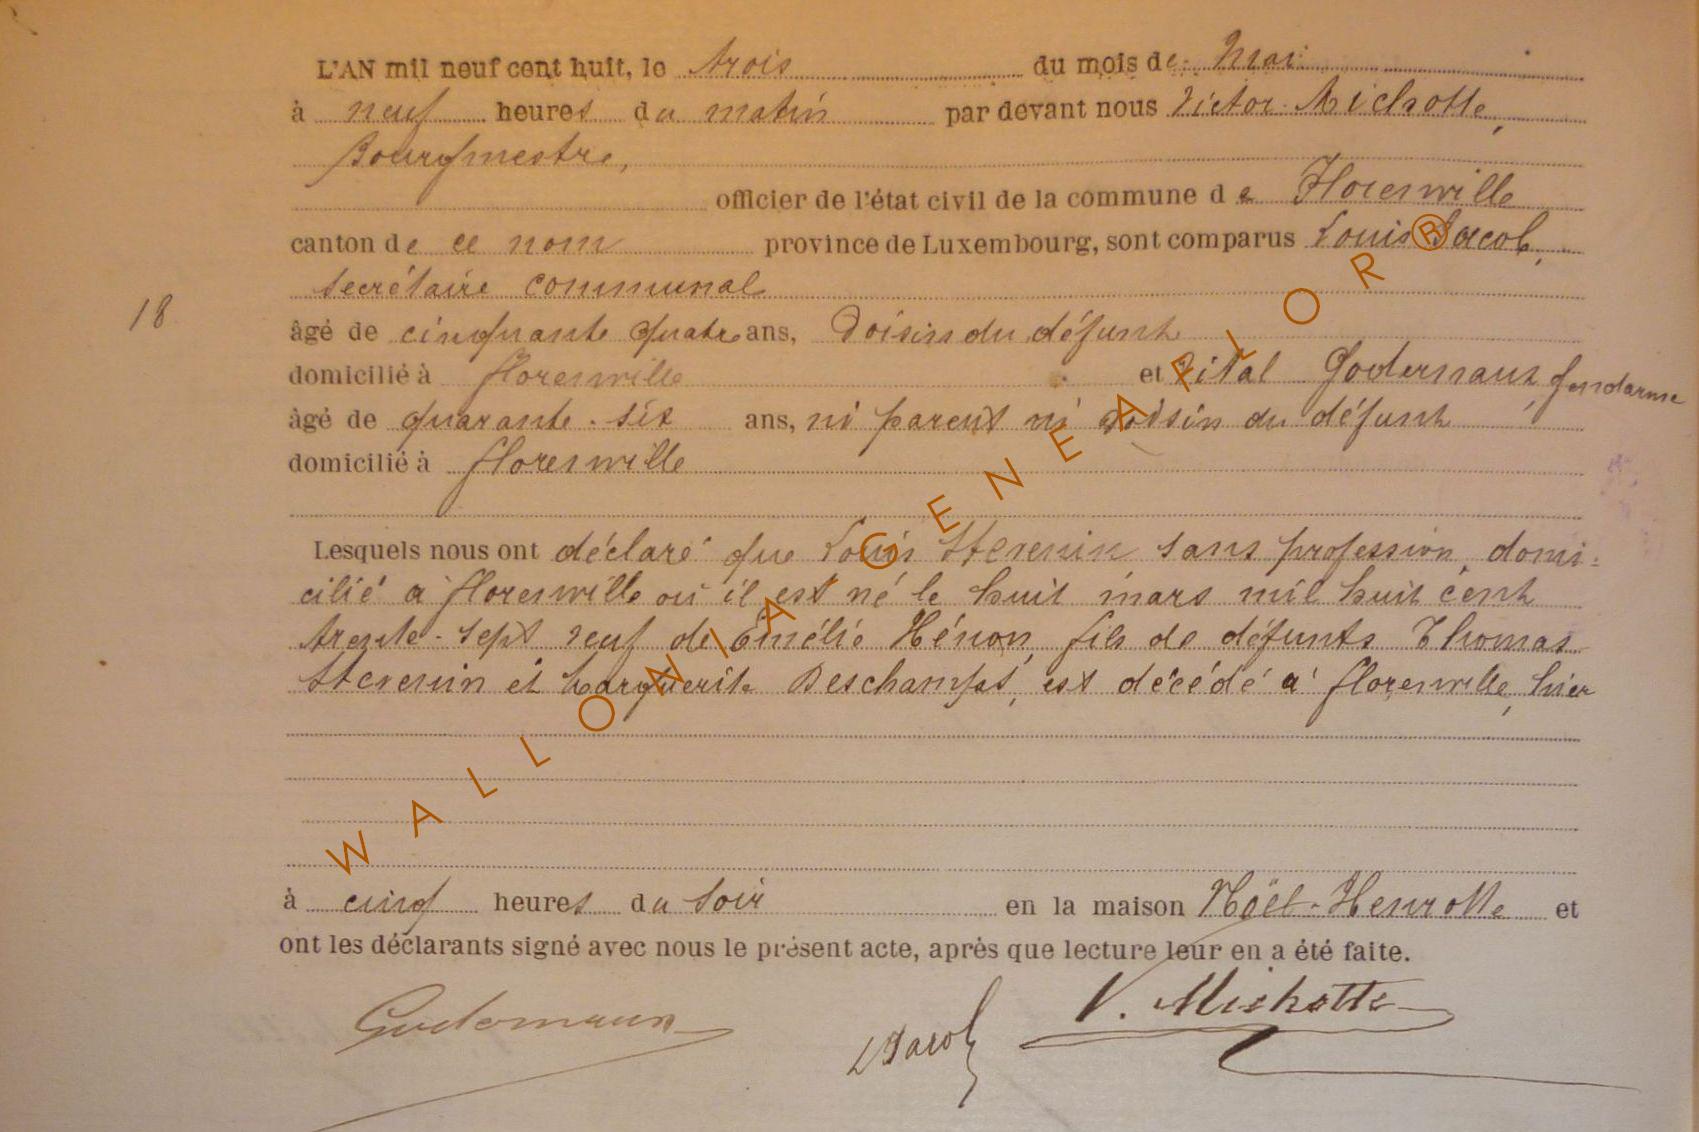 L'AN mil neuf cent huit, le trois du mois de Mai
à neuf heures du matin par devant nous Victor Michotte,
Bourgmestre,
officier de l'état civil de la commune de Florenville
canton de ce nom province de Luxembourg, sont comparus Louis Jacob,
secrétaire communal
18
âgé de cinquante quatre ans, Voisin du défunt
domicilié à florenville et Vital Godernaux, gendarme
âgé de quarante-six ans, ni parent ni voisin du défunt
domicilié à florenville
Lesquels nous ont déclaré que Louis Stevenin, sans profession, domi-
cilié à florenville où il est né le huit mars mil huit cent
trente-sept veuf de Émélie Hénon, fils de défunts Thomas
Stevenin et Marguerite Deschamps, est décédé à florenville, hier
à cinq heures du soir en la maison Noël-Henrotte et
ont les déclarants signé avec nous le présent acte, après que lecture leur en a été faite.
LJacob V. Michotte
WALLONIA GENEAFLOR ®